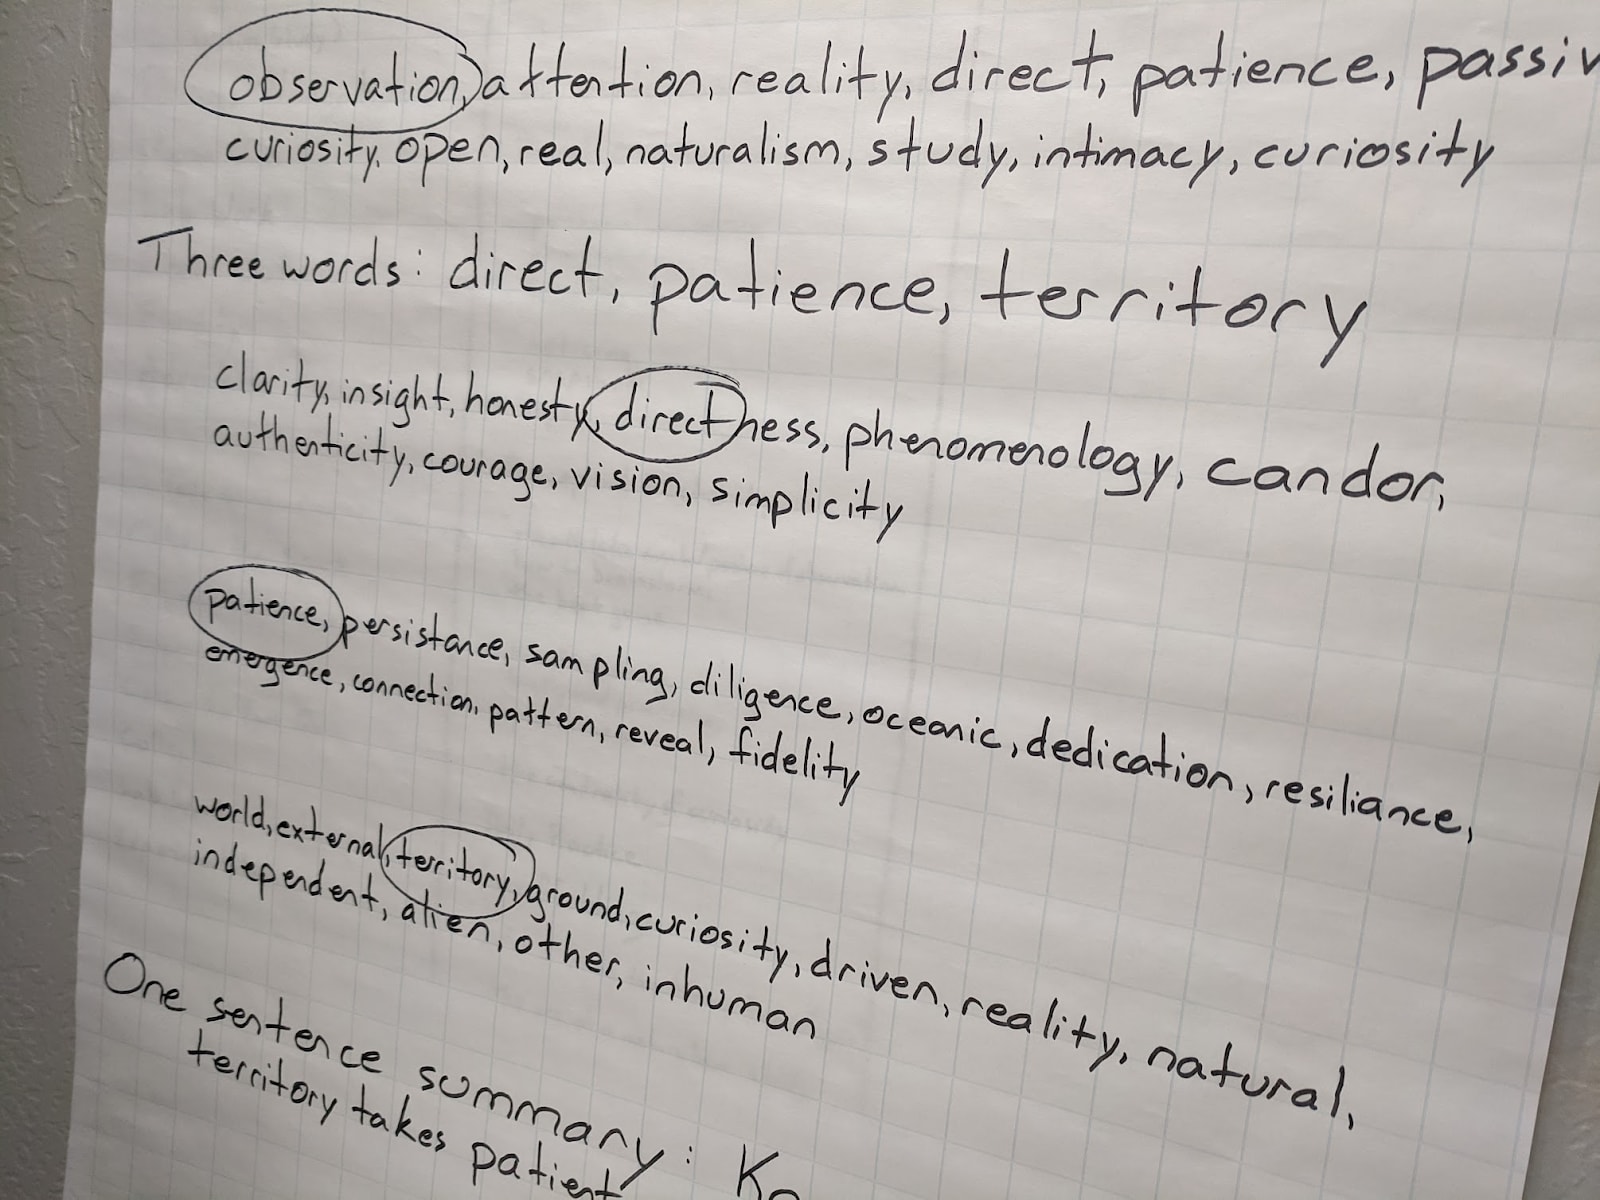 observation, attention, reality, direct, patience, passiv
curiosity, open, real, naturalism, study, intimacy, curiosity
Three words: direct, patience, territory
clarity, insight, honesty, directness, phenomenology, candor,
authenticity, courage, vision, simplicity
patience, persistance, sampling, diligence, oceanic, dedication, resiliance,
emergence, connection, pattern, reveal, fidelity
world, external, territory, ground, curiosity, driven, reality, natural,
independent, alien, other, inhuman
One sentence summary:
territory takes patient